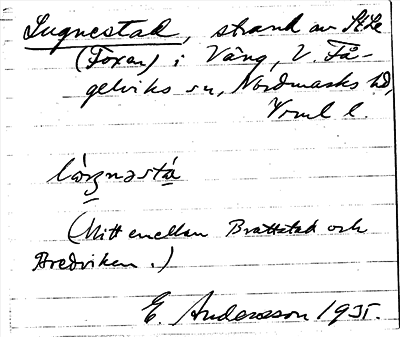 Lugnestad, strand av St. Le
(Foxan) i Vång, V. Få-
gelviks sn, Nordmarks hd,
Vrml l.
lɷŋnəstá
(Mitt emellan Brattstad och
Bredviken.)
E. Andersson 1935.